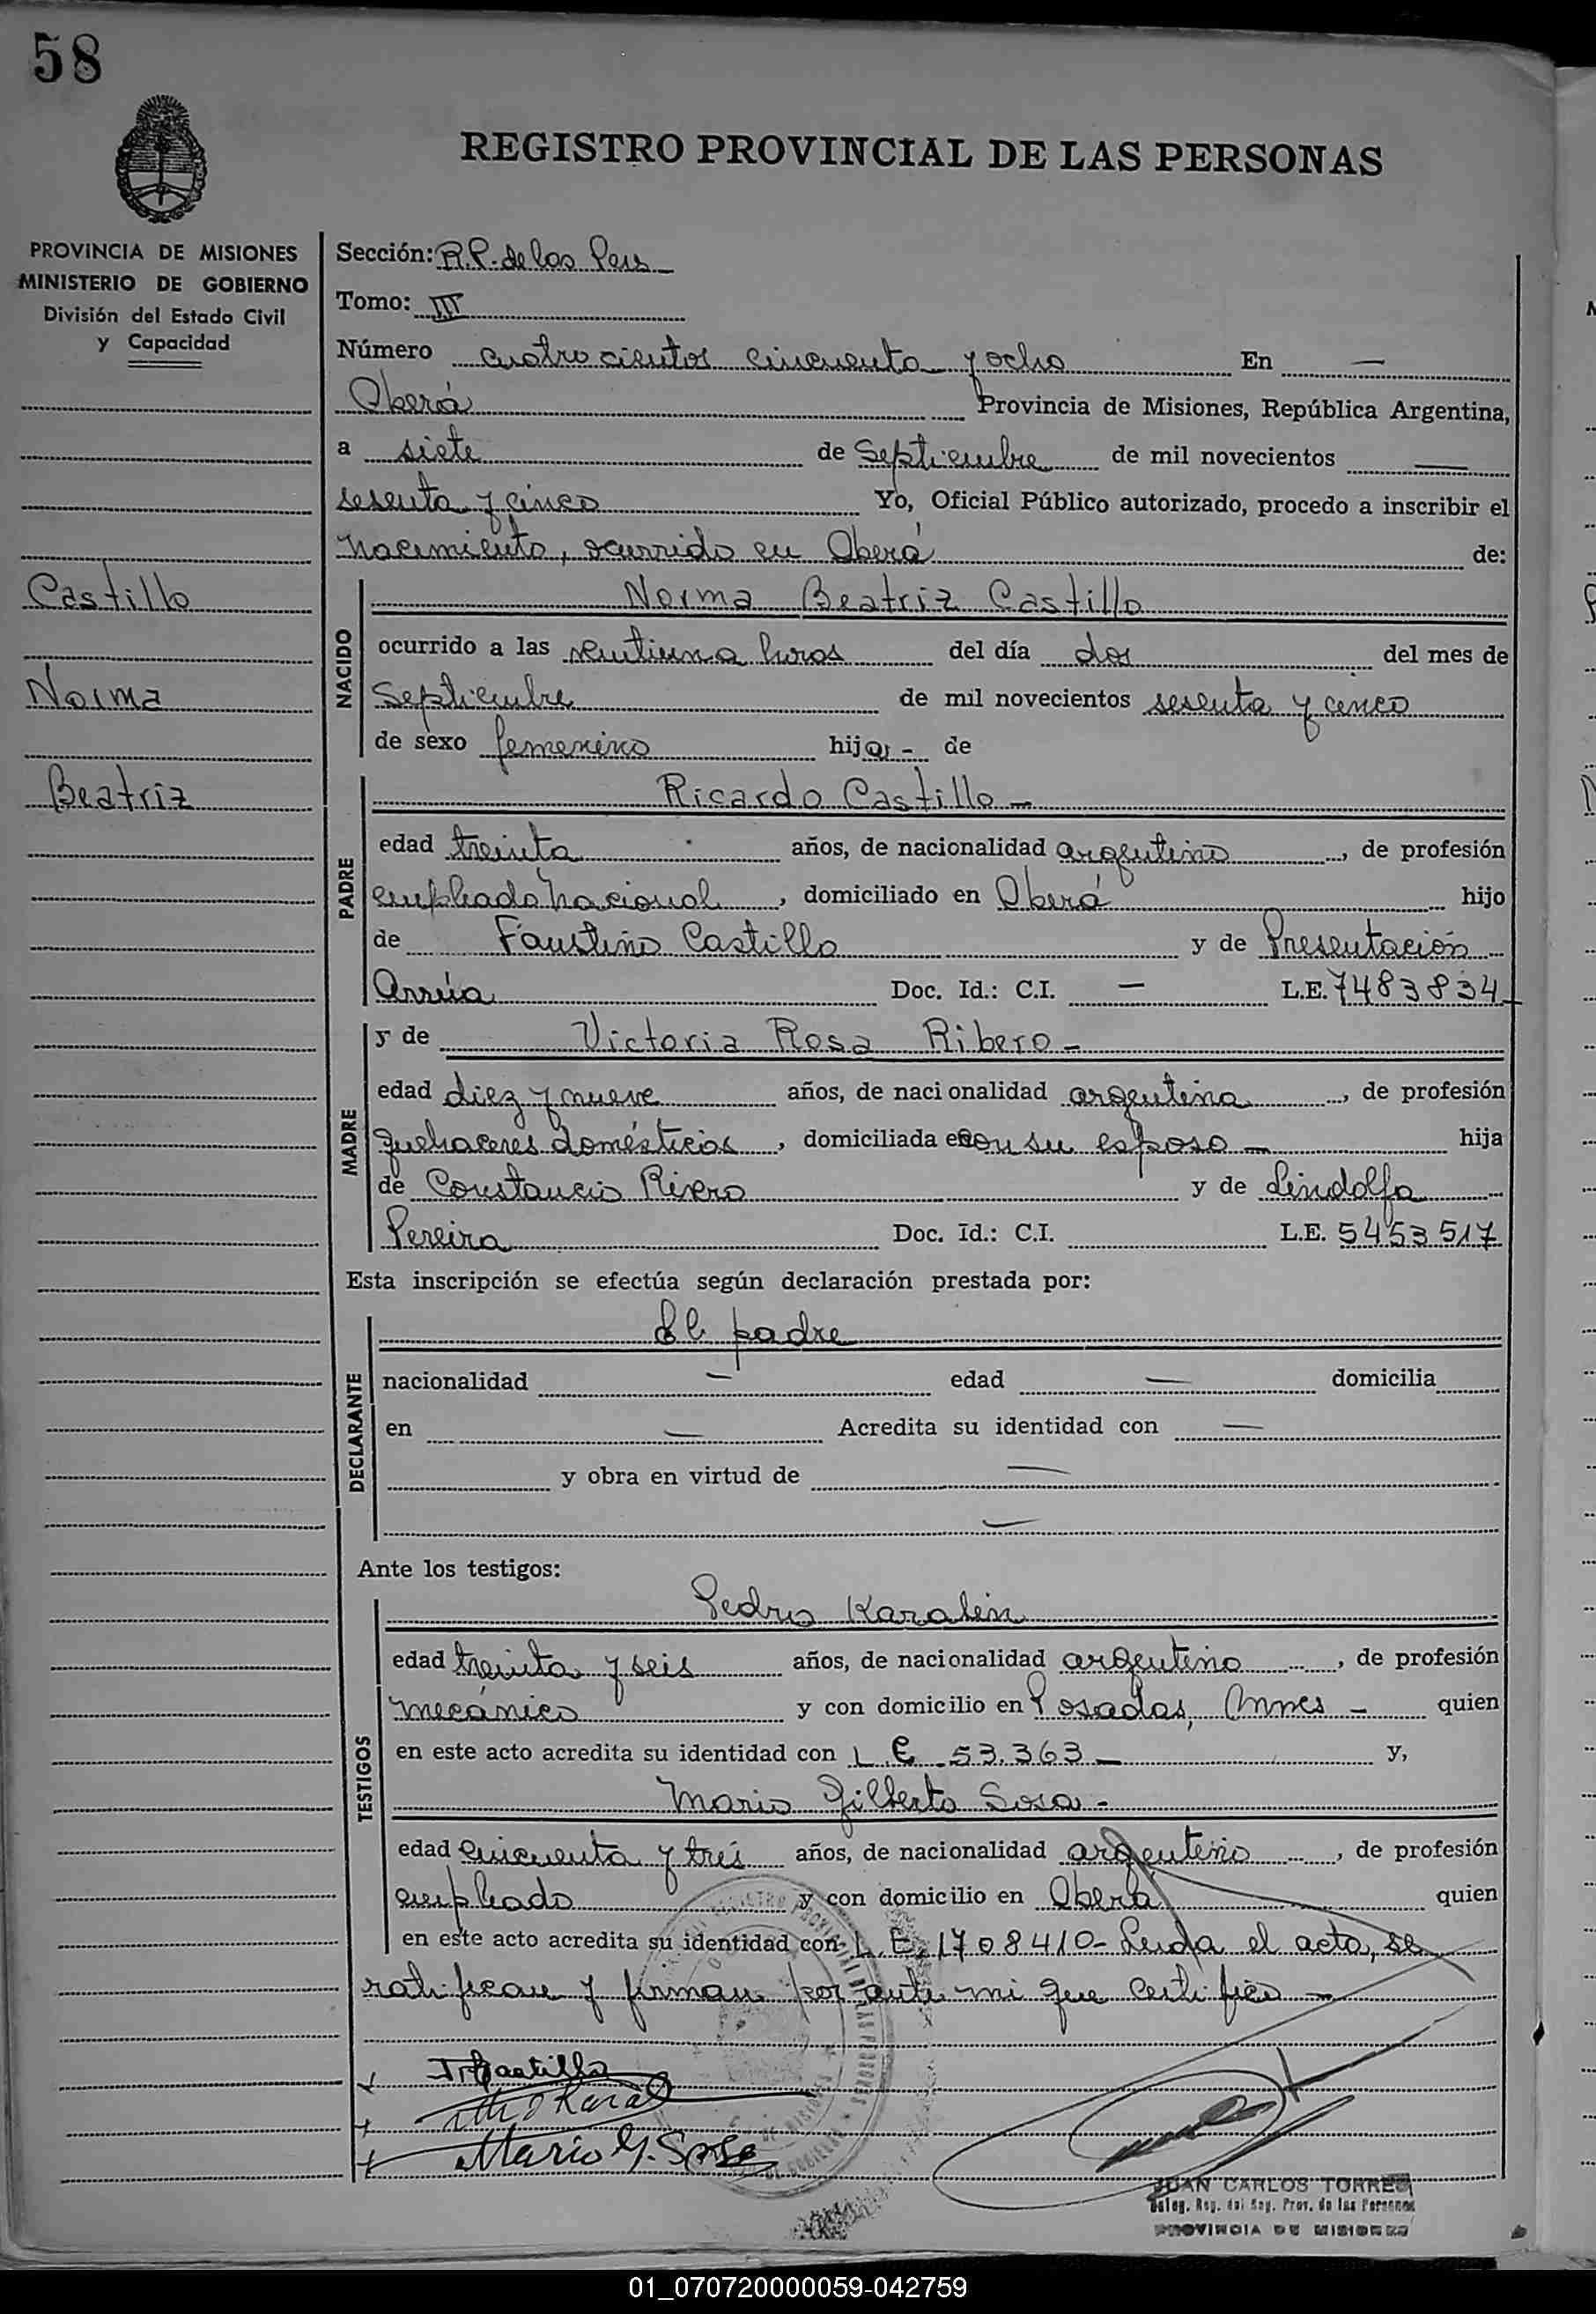 58
REGISTRO PROVINCIAL DE LAS PERSONAS
PROVINCIA DE MISIONES
MINISTERIO DE GOBIERNO
División del Estado Civil
y Capacidad
Castillo
Norma
Beatriz
Sección: R.P. de las Pers
Tomo: III
Número cuatrocientos cincuenta y ocho En —
Oberá Provincia de Misiones, República Argentina,
a siete de Septiembre de mil novecientos —
sesenta y cinco Yo, Oficial Público autorizado, procedo a inscribir el
nacimiento, ocurrido en Oberá de:
NACIDO
Norma Beatriz Castillo
ocurrido a las veintiuna horas del día dos del mes de
Septiembre de mil novecientos sesenta y cinco
de sexo femenino hija - de
PADRE
Ricardo Castillo -
edad treinta años, de nacionalidad argentino, de profesión
empleado nacional, domiciliado en Oberá hijo
de Faustino Castillo y de Presentación
Arrúa Doc. Id.: C.I. — L.E. 7483834
MADRE
y de Victoria Rosa Ribero -
edad diez y nueve años, de nacionalidad argentina, de profesión
quehaceres domésticos, domiciliada en con su esposo — hija
de Constancio Rivero y de Lindolfa
Pereira Doc. Id.: C.I. L.E. 5453517
Esta inscripción se efectúa según declaración prestada por:
DECLARANTE
El padre
nacionalidad — edad — domicilia
en — Acredita su identidad con —
y obra en virtud de —
—
Ante los testigos:
TESTIGOS
Pedro Karabin
edad treinta y seis años, de nacionalidad argentino, de profesión
mecánico y con domicilio en Posadas, Mnes - quien
en este acto acredita su identidad con L.E. 53.363 — y,
Mario Gilberto Sosa -
edad cincuenta y tres años, de nacionalidad argentino, de profesión
empleado y con domicilio en Oberá quien
en este acto acredita su identidad con L.E. 1708410- Leída el acta, se
ratifican y firman por ante mi que certifico —
Mario G. Sosa
JUAN CARLOS TORRES
Deleg. Reg. del Reg. Prov. de las Personas
PROVINCIA DE MISIONES
01_070720000059-042759